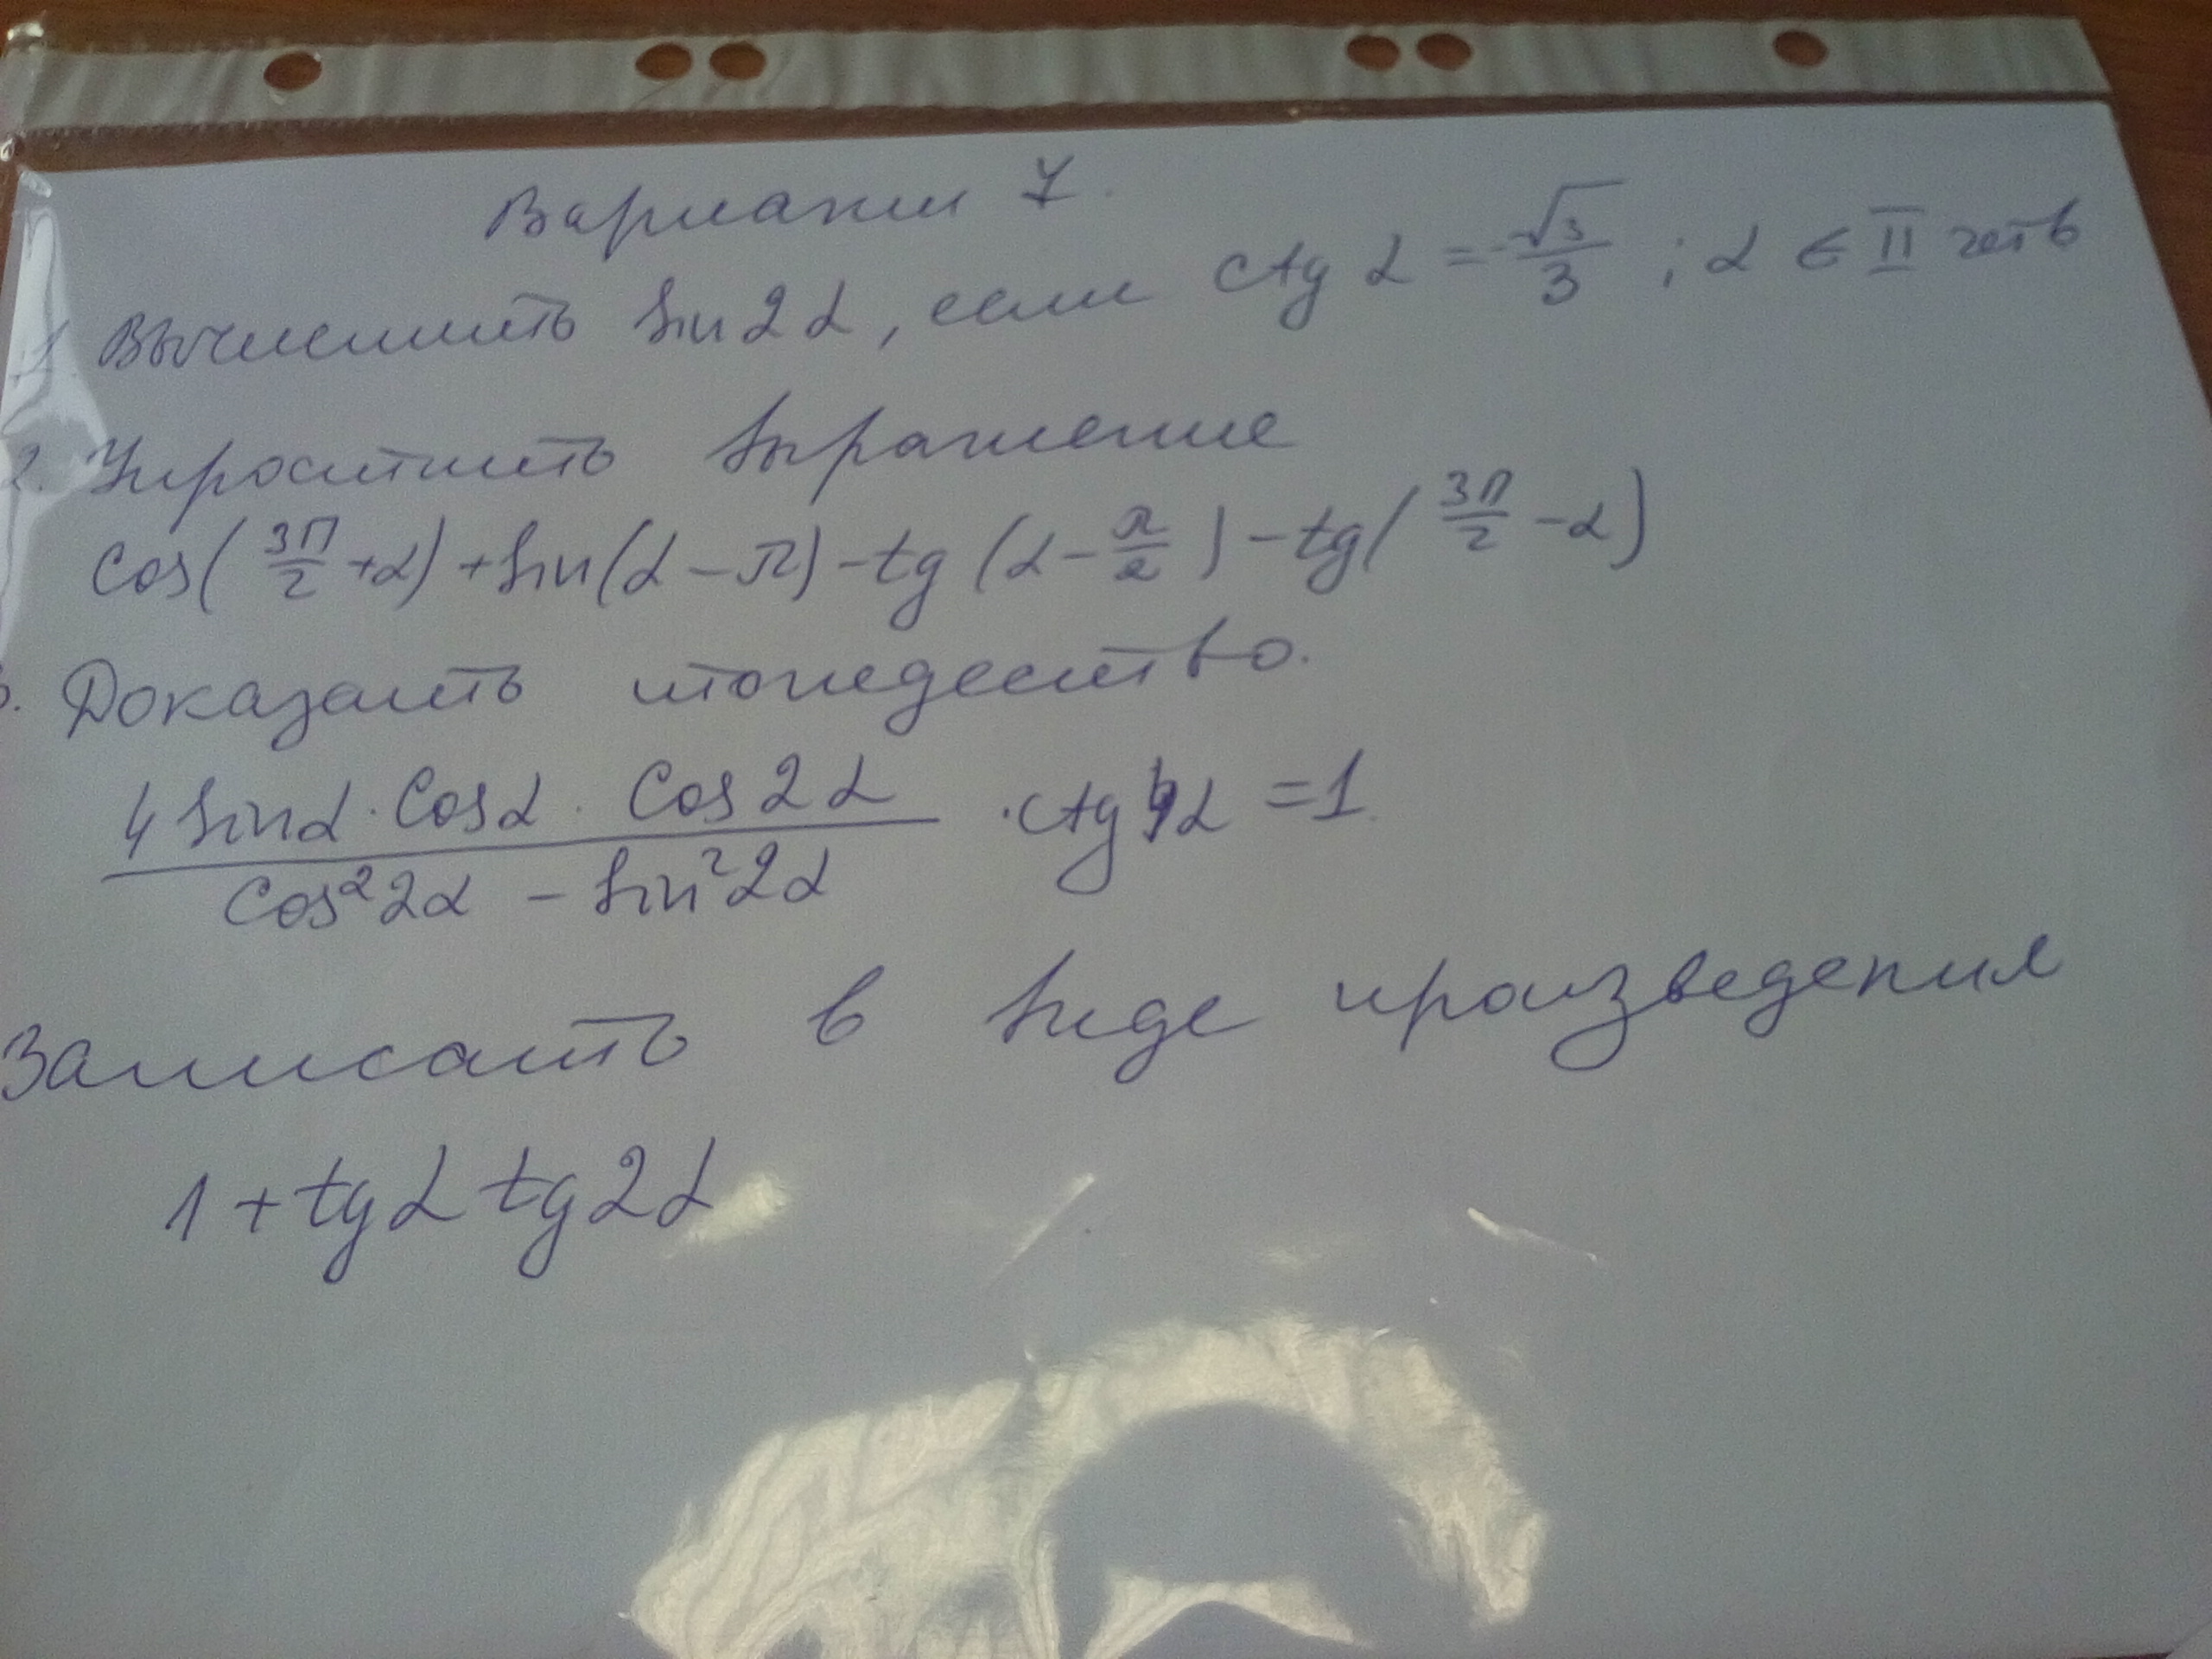 Вариант 7.
1. Вычислить sin2α, если ctg α = -√3/3 ; α ∈ II четв
2. Упростить выражение
cos(3π/2 +α) + sin(α - π) - tg (α - π/2) - tg(3π/2 - α)
3. Доказать тождество.
(4 sinα · cosα · cos2α)/(cos²2α - sin²2α) · ctg4α = 1.
Записать в виде произведения
1 + tgα tg2α